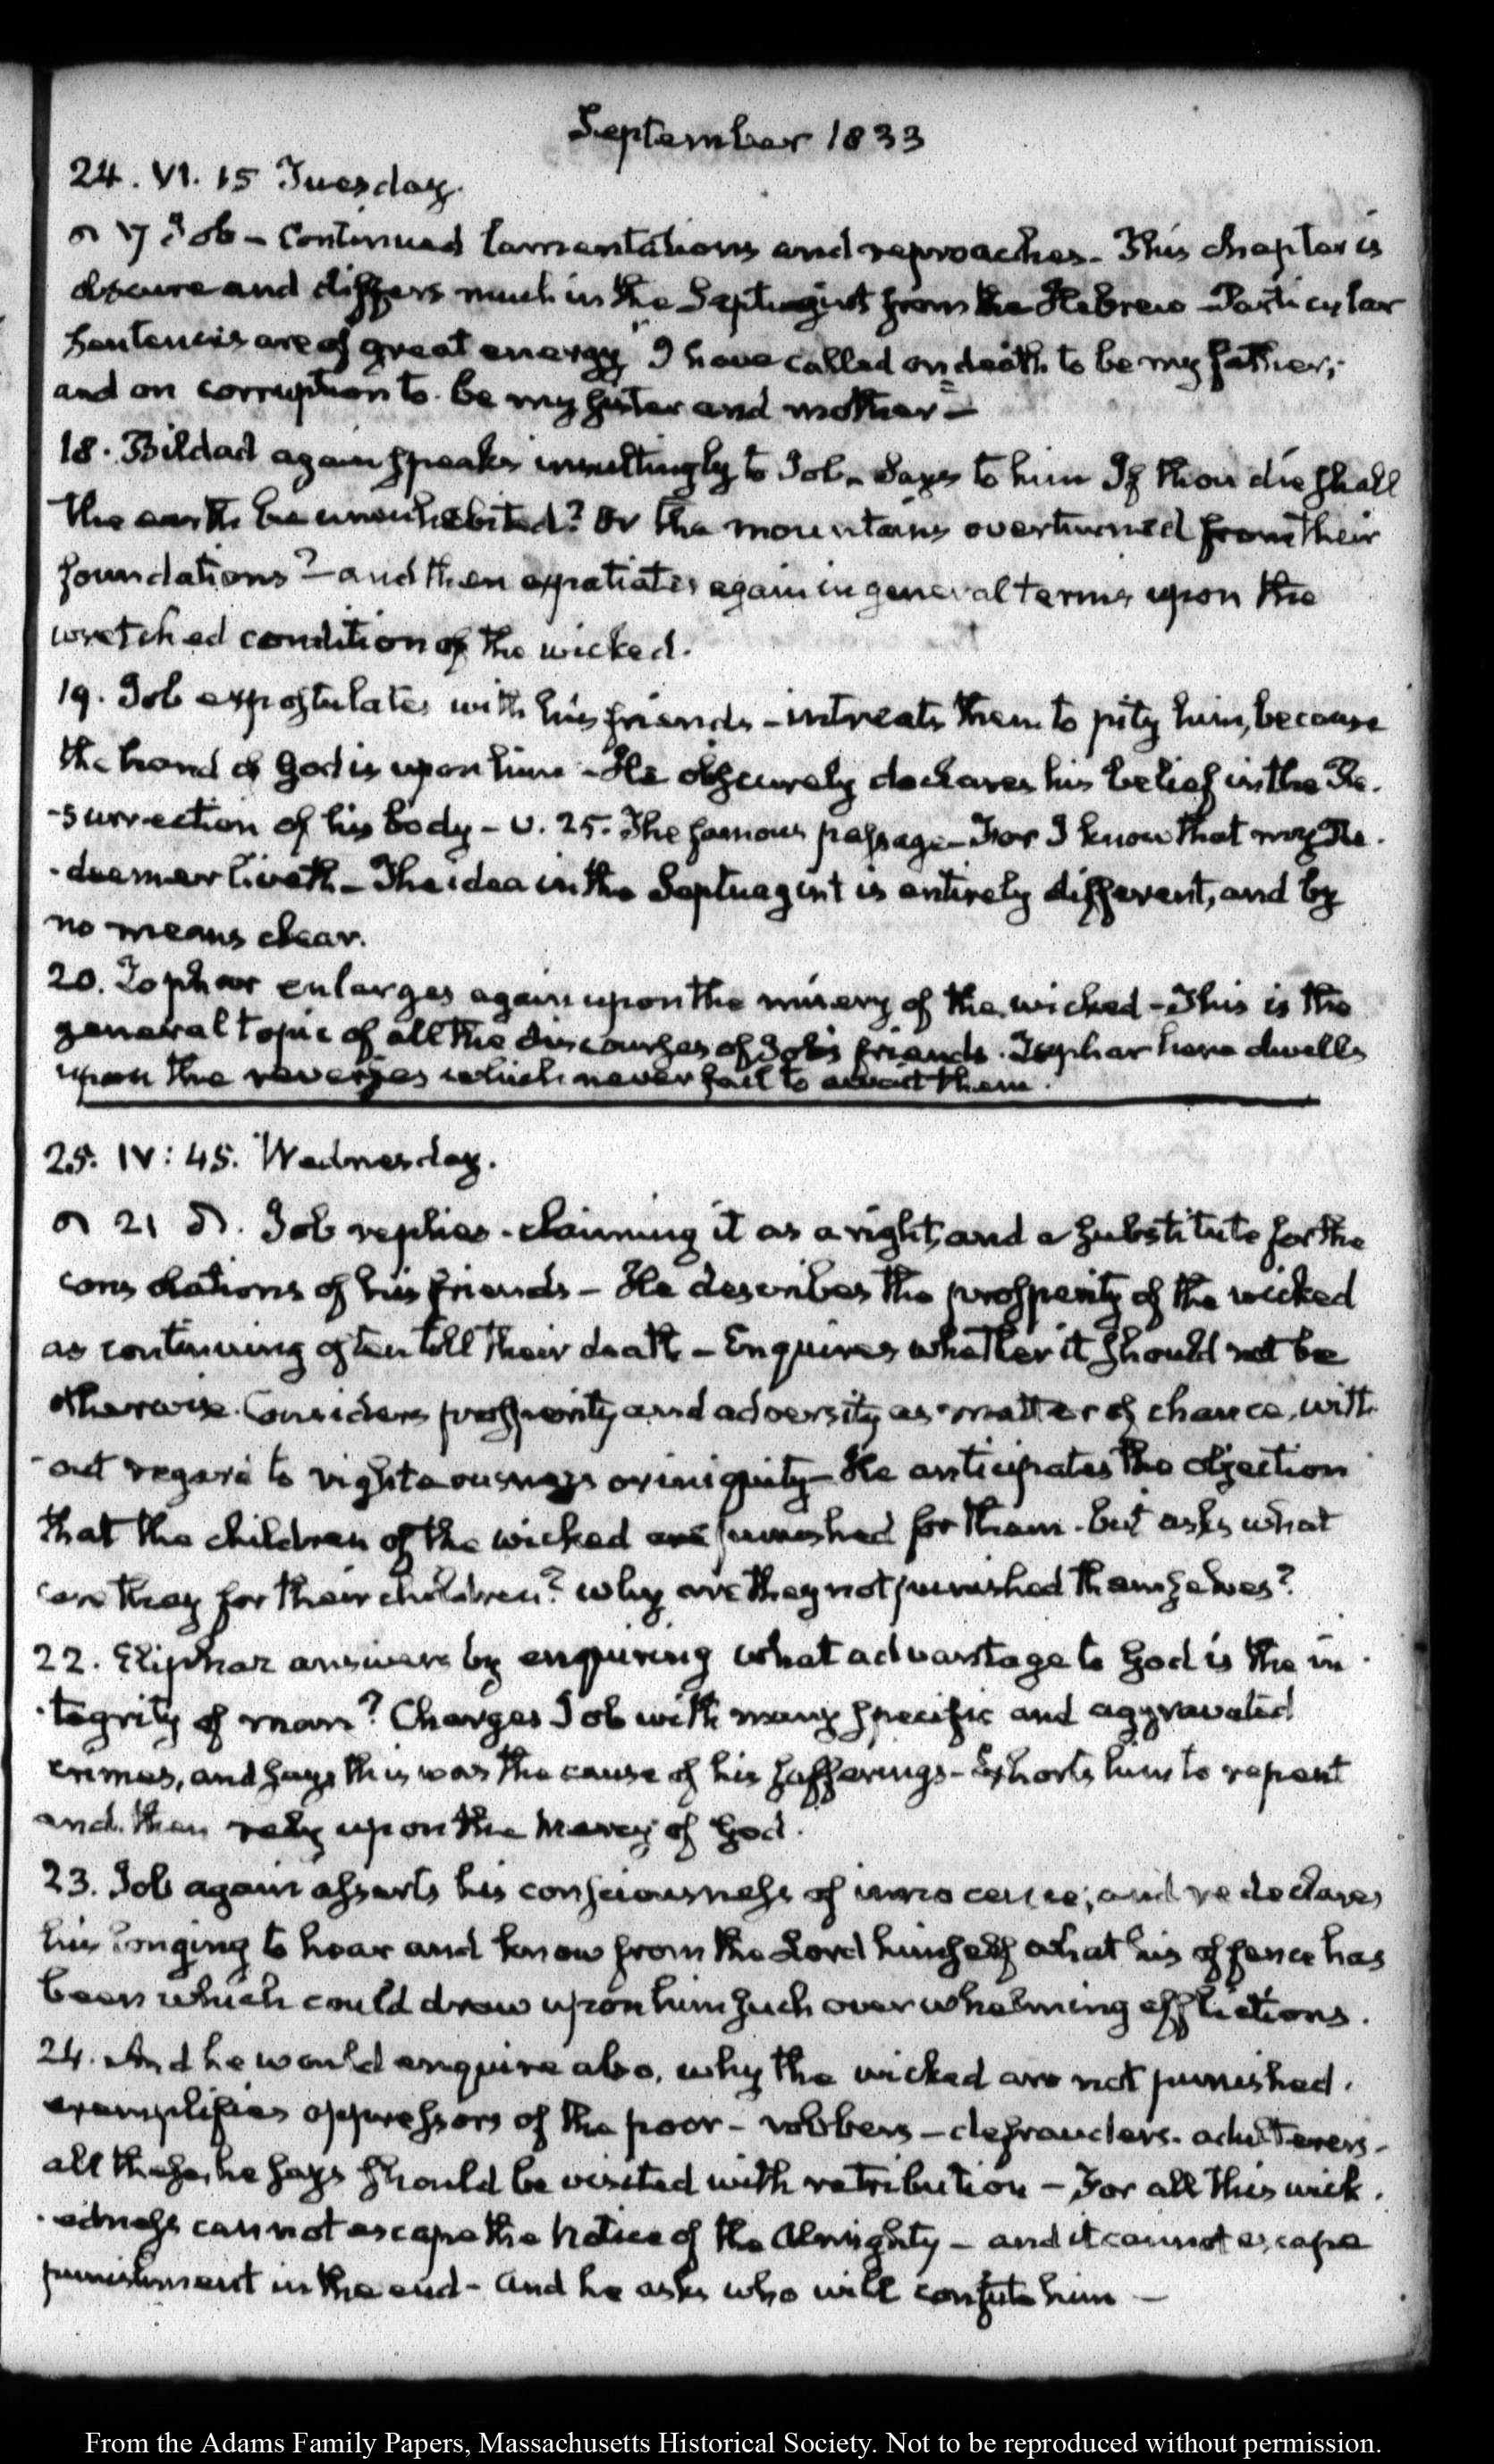 September 1833
24. VI. 15 Tuesday.
17 Job – Continued lamentations and reproaches – This chapter is
obscure and differs much in the Septuagint from the Hebrew – Particular
sentences are of great energy "I have called on death to be my father;
and on corruption to be my sister and mother" –
18. Bildad again speaks insultingly to Job – Says to him If thou die shall
the earth be uninhabited? Or the mountains overturned from their
foundations? – and then expatiates again in general terms upon the
wretched condition of the wicked.
19. Job expostulates with his friends – intreats them to pity him, because
the hand of God is upon him – He obscurely declares his belief in the Re-
-surrection of his body – v. 25. The famous passage – For I know that my Re-
-deemer liveth – The idea in the Septuagint is entirely different, and by
no means clear.
20. Zophar enlarges again upon the misery of the wicked – This is the
general topic of all the discourses of Job's friends. Zophar here dwells
upon the reverses which never fail to await them.
25. IV: 45. Wednesday.
21. Job replies – claiming it as a right, and a substitute for the
consolations of his friends – He describes the prosperity of the wicked
as continuing often till their death – Enquires whether it should not be
otherwise. Considers prosperity and adversity as matter of chance, with-
-out regard to righteousness or iniquity – He anticipates the objection
that the children of the wicked are punished for them – but asks what
care they for their children? why are they not punished themselves?
22. Eliphaz answers by enquiring what advantage to God is the in-
-tegrity of man? Charges Job with many specific and aggravated
crimes, and says this was the cause of his sufferings – Exhorts him to repent
and then rely upon the Mercy of God.
23. Job again asserts his consciousness of innocence; and redeclares
his longing to hear and know from the Lord himself what his offence has
been which could draw upon him such overwhelming afflictions.
24. And he would enquire also, why the wicked are not punished.
exemplifies oppressors of the poor – robbers – defrauders – adulterers –
all these, he says should be visited with retribution – For all this wick-
-edness cannot escape the notice of the Almighty – and it cannot escape
punishment in the end – and he asks who will confute him –
From the Adams Family Papers, Massachusetts Historical Society. Not to be reproduced without permission.